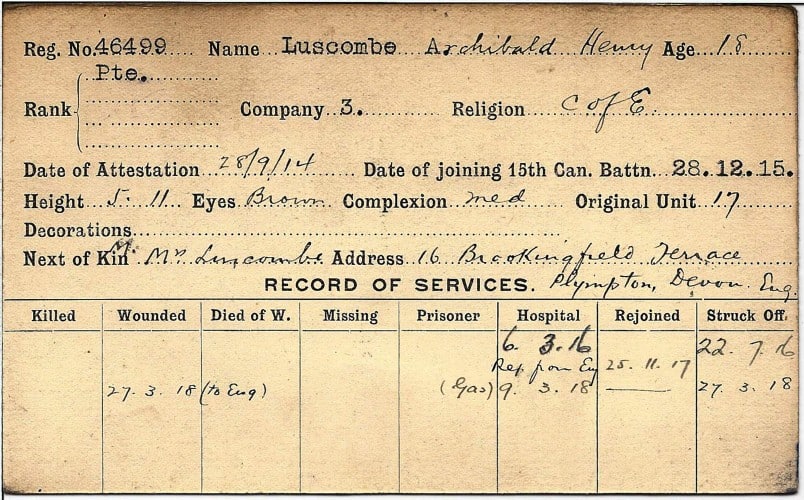 Reg. No. 46499 Name Luscombe Archibald Henry Age 18
Pte.
Rank Company 3. Religion C of E
Date of Attestation 28/9/14 Date of joining 15th Can. Battn. 28.12.15.
Height 5. 11 Eyes Brown Complexion med Original Unit 17
Decorations
Next of Kin M. Mrs Luscombe Address 16 Brookingfield Terrace
RECORD OF SERVICES. Plympton, Devon. Eng.
Killed Wounded Died of W. Missing Prisoner Hospital Rejoined Struck Off.
6. 3. 16 22. 7. 16
from Eng 25. 11. 17
27. 3. 18 (to Eng) (Gas) 9. 3. 18 —— 27. 3. 18